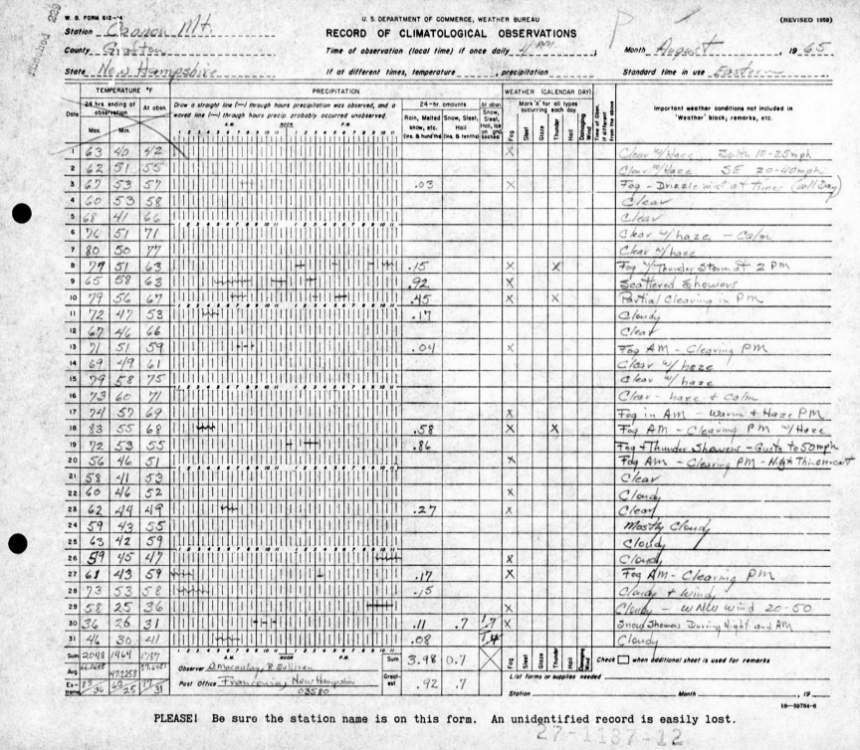 W. B. FORM 612-14
U. S. DEPARTMENT OF COMMERCE, WEATHER BUREAU
(REVISED 1958)
Station Cannon Mt.
RECORD OF CLIMATOLOGICAL OBSERVATIONS
County Grafton
Time of observation (local time) if once daily 4 PM
Month August, 1965
State New Hampshire
If at different times, temperature , precipitation
Standard time in use Eastern
TEMPERATURE °F
PRECIPITATION
WEATHER (CALENDAR DAY)
Date
24 hrs ending at observation
At obsn.
Max. Min.
Draw a straight line (—) through hours precipitation was observed, and a waved line through hours precip. probably occurred unobserved.
A.M. NOON P.M.
24-hr. amounts
Rain, Melted snow, etc. (Ins. & hundths)
Snow, Sleet, Hail (Ins. & tenths)
At obsn.
Mark 'X' for all types occurring each day
Fog Sleet Glaze Thunder Hail Damaging Wind
Important weather conditions not included in 'Weather' block; remarks, etc.
1 63 40 42 X Clear w/Haze South 15-25mph
2 62 51 55 Clear w/Haze SE 20-40mph
3 67 53 57 .03 X Fog - Drizzle mist at Times (all Day)
4 60 53 58 Clear
5 68 41 66 Clear
6 76 51 71 Clear w/haze - Calm
7 80 50 77 Clear w/haze
8 79 51 63 .15 X X Fog w/Thunder Storm at 2 PM
9 65 58 63 .92 X Scattered Showers
10 79 56 67 .45 X X Partial Clearing in PM
11 72 47 53 .17 Cloudy
12 67 46 66 Clear
13 71 51 59 .04 X Fog AM - Clearing PM
14 69 49 61 Clear w/haze
15 79 58 75 Clear w/haze
16 73 60 71 Clear - haze & Calm
17 74 57 69 X Fog in AM - Warm & Haze PM
18 83 55 68 .58 X X Fog AM - Clearing PM w/Haze
19 72 53 55 .86 Fog & Thunder Showers - Gusts to 50mph
20 56 46 51 X Fog AM - Clearing PM - High Thin overcast
21 58 41 53 Clear
22 60 46 52 X Cloudy
23 62 44 49 .27 X Clear
24 59 43 55 Mostly Cloudy
25 63 42 59 Cloudy
26 59 45 47 X Cloudy
27 61 43 59 .17 X Fog AM - Clearing PM
28 73 53 58 .15 Cloudy & Wind
29 58 25 36 X Cloudy - WNW Wind 20-50
30 36 26 31 .11 .7 1.7 X Snow Showers During Night and AM
31 46 30 41 .08 X Cloudy
Sum 2048 1464 1787 Sum 3.98 0.7
Check when additional sheet is used for remarks
Avg
Observer D. Macaulay, R. Sullivan
Post Office Franconia, New Hampshire 03580
Greatest .92 .7
List forms or supplies needed
Station Month , 19
PLEASE! Be sure the station name is on this form. An unidentified record is easily lost.
27-1137-12